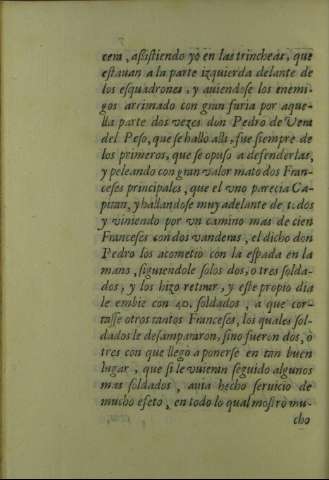 cem, aßistiendo yo en las trincheas, que
estauan a la parte izquierda delante de
los esquadrones, y auiendose los enemi-
gos arrimado con gran furia por aque-
lla parte dos vezes don Pedro de Vem
del Peso, que se hallo alli, fue siempre de
los primeros, que se opuso a defenderlas,
y peleando con gran valor mato dos Fran-
ceses principales, que el vno parecia Ca-
pitan, y hallandose muy adelante de todos
y viniendo por vn camino mas de cien
Franceses con dos vanderas, el dicho don
Pedro los acometio con la espada en la
mano, siguiendole solos dos, o tres solda-
dos, y los hizo retirar, y este propio dia
le embie con 40. soldados, a que cor-
tasse otros tantos Franceses, los quales sol-
dados le desampararon, sino fueron dos, ò
tres con que llegò a ponerse en tan buen
lugar, que si le vuieran seguido algunos
mas soldados, auia hecho seruicio de
mucho efeto, en todo lo qual mostrò mu-
cho